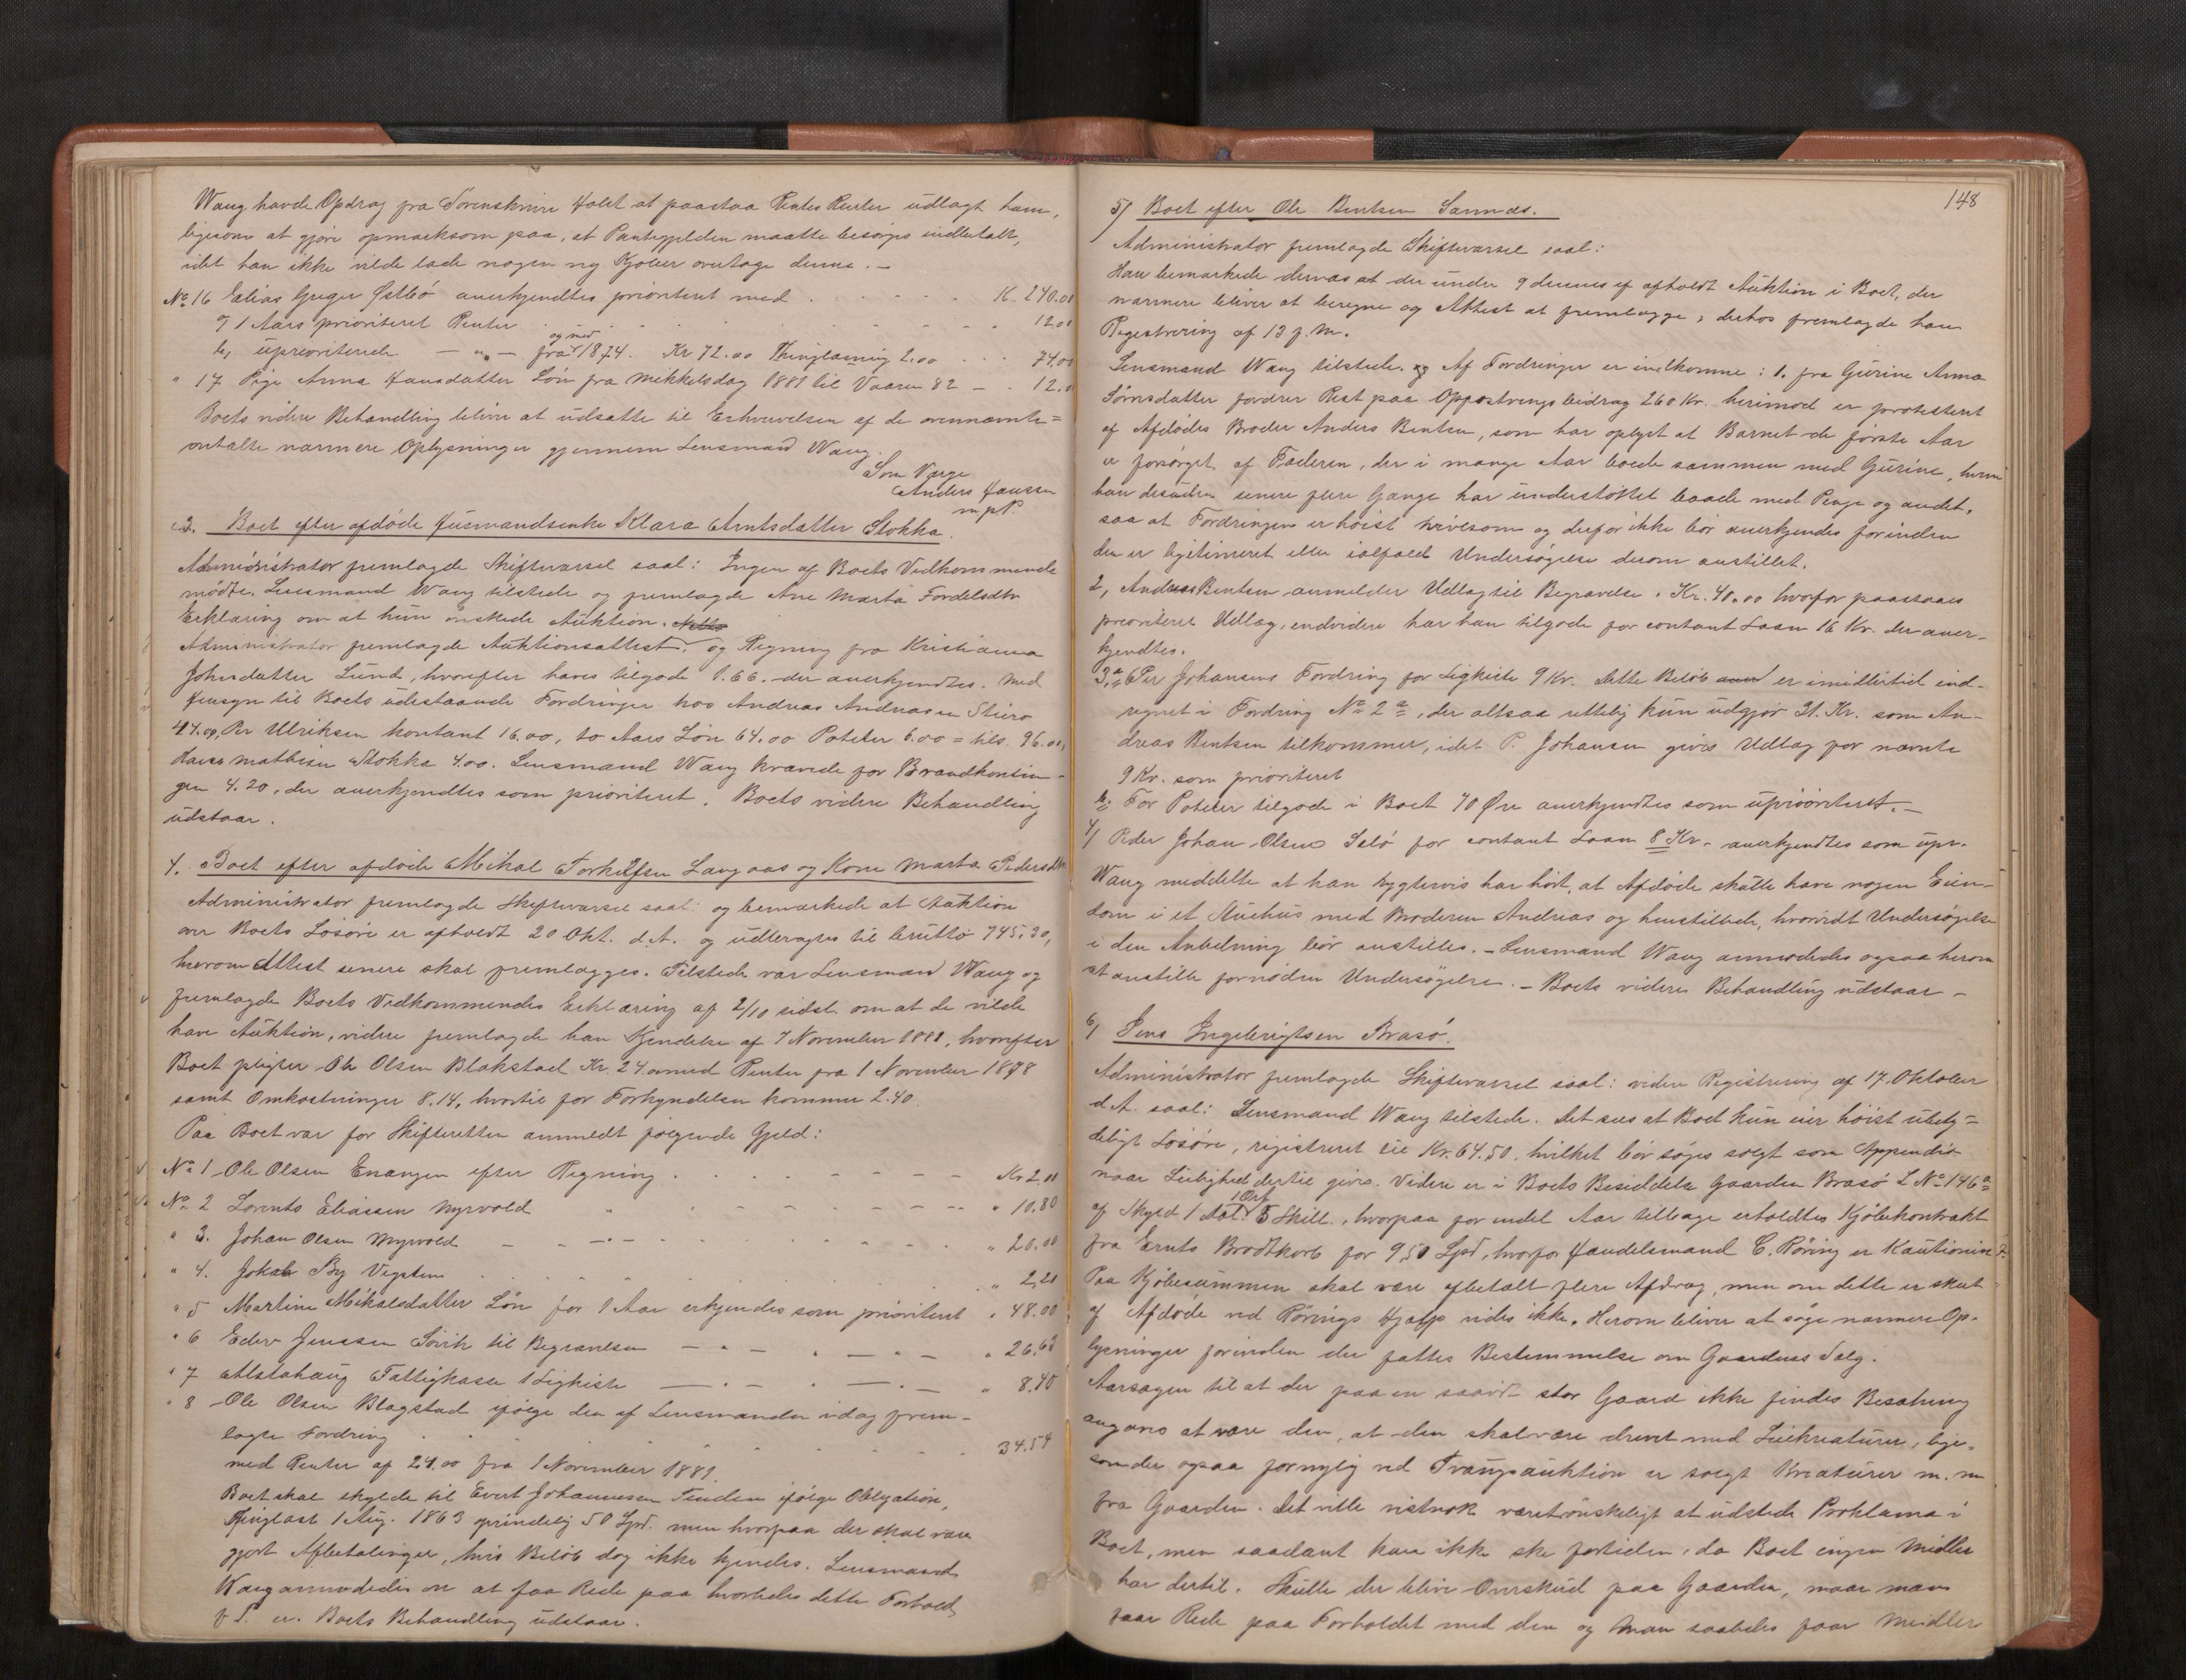 Wang havde Opdrag fra Sorenskriver Holst at paastaa Rentes Renter udlagt ham,
ligesom at gjøre opmærksom paa, at Pantegjelden maatte besørges indbetalt,
idet han ikke vilde lade nogen ny Kjøber overtage denne. —
No 16 Elias Greger Østbö anerkjendtes prioriteret med 16. 240.00
1 Aars prioriteret Renter 12.00
b, uprioriterede — " — og med fra 1874. Kr 72.00 Thinglæsning 2.00 74.00
" 17 Pige Anna Hansdatter Løn fra Mikkelsdag 1881 til Vaaren 82 — 12.0
Boets videre Behandling bliver at udsætte til Erhvervelsen af de ovennævnte=
omtalte nærmere Oplysninger gjennem Lensmand Wang.
Som Værge
Anders Hanssen
m.p.P.
3. Boet efter afdøde Husmandsenke Klara Arntsdatter Stokka.
Administrator fremlagde Skiftevarsel saal: Ingen af Boets Vedkommende
mødte. Lensmand Wang tilstede og fremlagde Ane Marta Fordelsdtr
Erklæring om at hun ønskede Auktion.
Administrator fremlagde Auktionsattest og Regning fra Kristianna
Johnsdatter Lund, hvorefter haves tilgode 1.66. der anerkjendtes. Med
Hensyn til Boets udestaaende Fordringer hos Andreas Andreasen Stiro
44.00, Per Ulriksen kontant 16.00, to Aars Løn 64.00 Poteter 6.00 = tils. 96.00,
Hans Mathisen Stokka 4.00. Lensmand Wang krævede for Brandkontin-
gen 4.20, der anerkjendtes som prioriteret. Boets videre Behandling
udstaar.
4. Boet efter afdøde Mikal Torkilsen Langaas og Kone Marta Pedersdtr.
Administrator fremlagde Skiftevarsel saal: og bemærkede at Auktion
over Boets Løsøre er afholdt 20 Okt. d.A. og udbragtes til brutto 745.30,
hvorom Attest senere skal fremlægges. Tilstede var Lensmand Wang og
fremlagde Boets Vedkommendes Erklæring af 2/10 sidst. om at de vilde
have Auktion, videre fremlagde han Kjendelse af 7 November 1881, hvorefter
Boet pligter Ole Olsen Blakstad Kr. 24 med Renter fra 1 November 1878
samt Omkostninger 8.14, hvortil for Forkyndelsen kommer 2.40.
Paa Boet var for Skifteretten anmeldt følgende Gjeld:
No 1 Ole Olsen Enangen efter Regning Kr 2.00
No 2 Lorents Eliassen Myrvold " 10.80
" 3. Johan Olsen Myrvold " 20.00
" 4. Jokab By Vegsten " 2,20
" 5 Martine Mikalsdatter Løn for 1 Aar erkjendes som prioriteret " 48.00
" 6 Eder Jenssen Søvik til Begravelsen " 26.62
" 7 Alstahaug Fattigkasse 1 Ligkiste " 8.40
" 8 Ole Olsen Blagstad ifølge den af Lensmanden idag frem-
lagte Fordring 34.54
med Renter af 24.00 fra 1 November 1881.
Boet skal skylde til Evert Johannesen Tenden ifølge Obligation,
Thinglæst 1 Aug. 1863 oprindelig 50 Spd. men hvorpaa der skal være
gjort Afbetalinger, hvis Beløb dog ikke kjendes. Lensmand
Wang anmodedes om at faa Rede paa hvorledes dette Forhold
er. Boets Behandling udstaar.
148
5/ Boet efter Ole Bentsen Sannæs.
Administrator fremlagde Skiftevarsel saal:
Han bemærkede derhos at der under 9 dennes er afholdt Auktion i Boet, der
nærmere bliver at beregne og Attest at fremlægge, derhos fremlagde han
Registrering af 13 f.M.
Lensmand Wang tilstede. Af Fordringer er indkomne: 1. fra Gurine Anna
Sørnsdatter fordrer Rest paa Oppostringsbidrag 260 Kr. herimod er protesteret
af Afdødes Broder Anders Bentsen, som har oplyst at Barnet de første Aar
er forsørget af Faderen, der i mange Aar boede sammen med Gurine, hvem
han desuden senere flere Gange har understøttet baade med Penge og andet,
saa at Fordringen er høist tvivlsom og derfor ikke bör anerkjendes forinden
den er legitimeret eller ialfald Undersøgelse derom anstillet.
2, Andreas Bentsen anmelder Udlæg til Begravelse . Kr. 40.00 hvorfor paastaaes
prioriteret Udlæg, endvidere har han tilgode for contant Laan 16 Kr. der aner-
kjendtes.
3 a, Per Johansens Fordring for Ligkiste 9 Kr. Dette Beløb er imidlertid ind-
regnet i Fordring No 2 a, der altsaa rettelig kun udgjør 31. Kr. som An-
dreas Bentsen tilkommer, idet P. Johansen gives Udlæg for nævnte
9 Kr. som prioriteret
b: For Poteter tilgode i Boet 70 Øre anerkjendtes som uprioriteret. —
4/ Peder Johan Olsen Selö for contant Laan 8 Kr. anerkjendtes som upr.
Wang meddelte at han rygtevis har hört, at Afdøde skulle have nogen Eien-
dom i et Stuehus med Broderen Andreas og henstillede, hvorvidt Undersøgelse
i den Anledning bör anstilles. — Lensmand Wang anmodedes ogsaa herom
at anstille fornöden Undersögelse. — Boets videre Behandling udstaar —
6/ Jens Ingebrigtsen Brasö.
Administrator fremlagde Skiftevarsel saal: videre Registrering af 17. Oktober
d.A. saal: Lensmand Wang tilstede. Det sees at Boet kun eier höist ubety=
deligt Løsøre, registreret til Kr. 64.50, hvilket bör søges solgt som Appendix
naar Leilighed dertil gives. Videre er i Boets Besiddelse Gaarden Brasö L No 146 a
af Skyld 1 Dal. 1 Ort 5 Skill., hvorpaa for endel Aar tilbage erholdtes Kjöbekontrakt
fra Ernts Brodtkorb for 950 Spd, hvorfor Handelsmand C. Röring er Kautionist.
Paa Kjöbesummen skal være afbetalt flere Afdrag, men om dette er sket
af Afdøde ved Rörings Hjælp vides ikke. Herom bliver at søge nærmere Op-
lysninger forinden der fattes Bestemmelse om Gaardens Salg.
Aarsagen til at der paa en saavidt stor Gaard ikke findes Besætning
angives at være den, at den skal være drevet med Leiekreaturer, lige-
som der ogsaa fornylig ved Tvangsauktion er solgt Kreaturer m.m
fra Gaarden. Det ville vistnok været ønskeligt at udstede Proklama i
Boet, men saadant kan ikke ske fortiden, da Boet ingen Midler
har dertil. Skulle der blive Overskud paa Gaarden, naar man
faar Rede paa Forholdet med den og man saaledes faar Midler